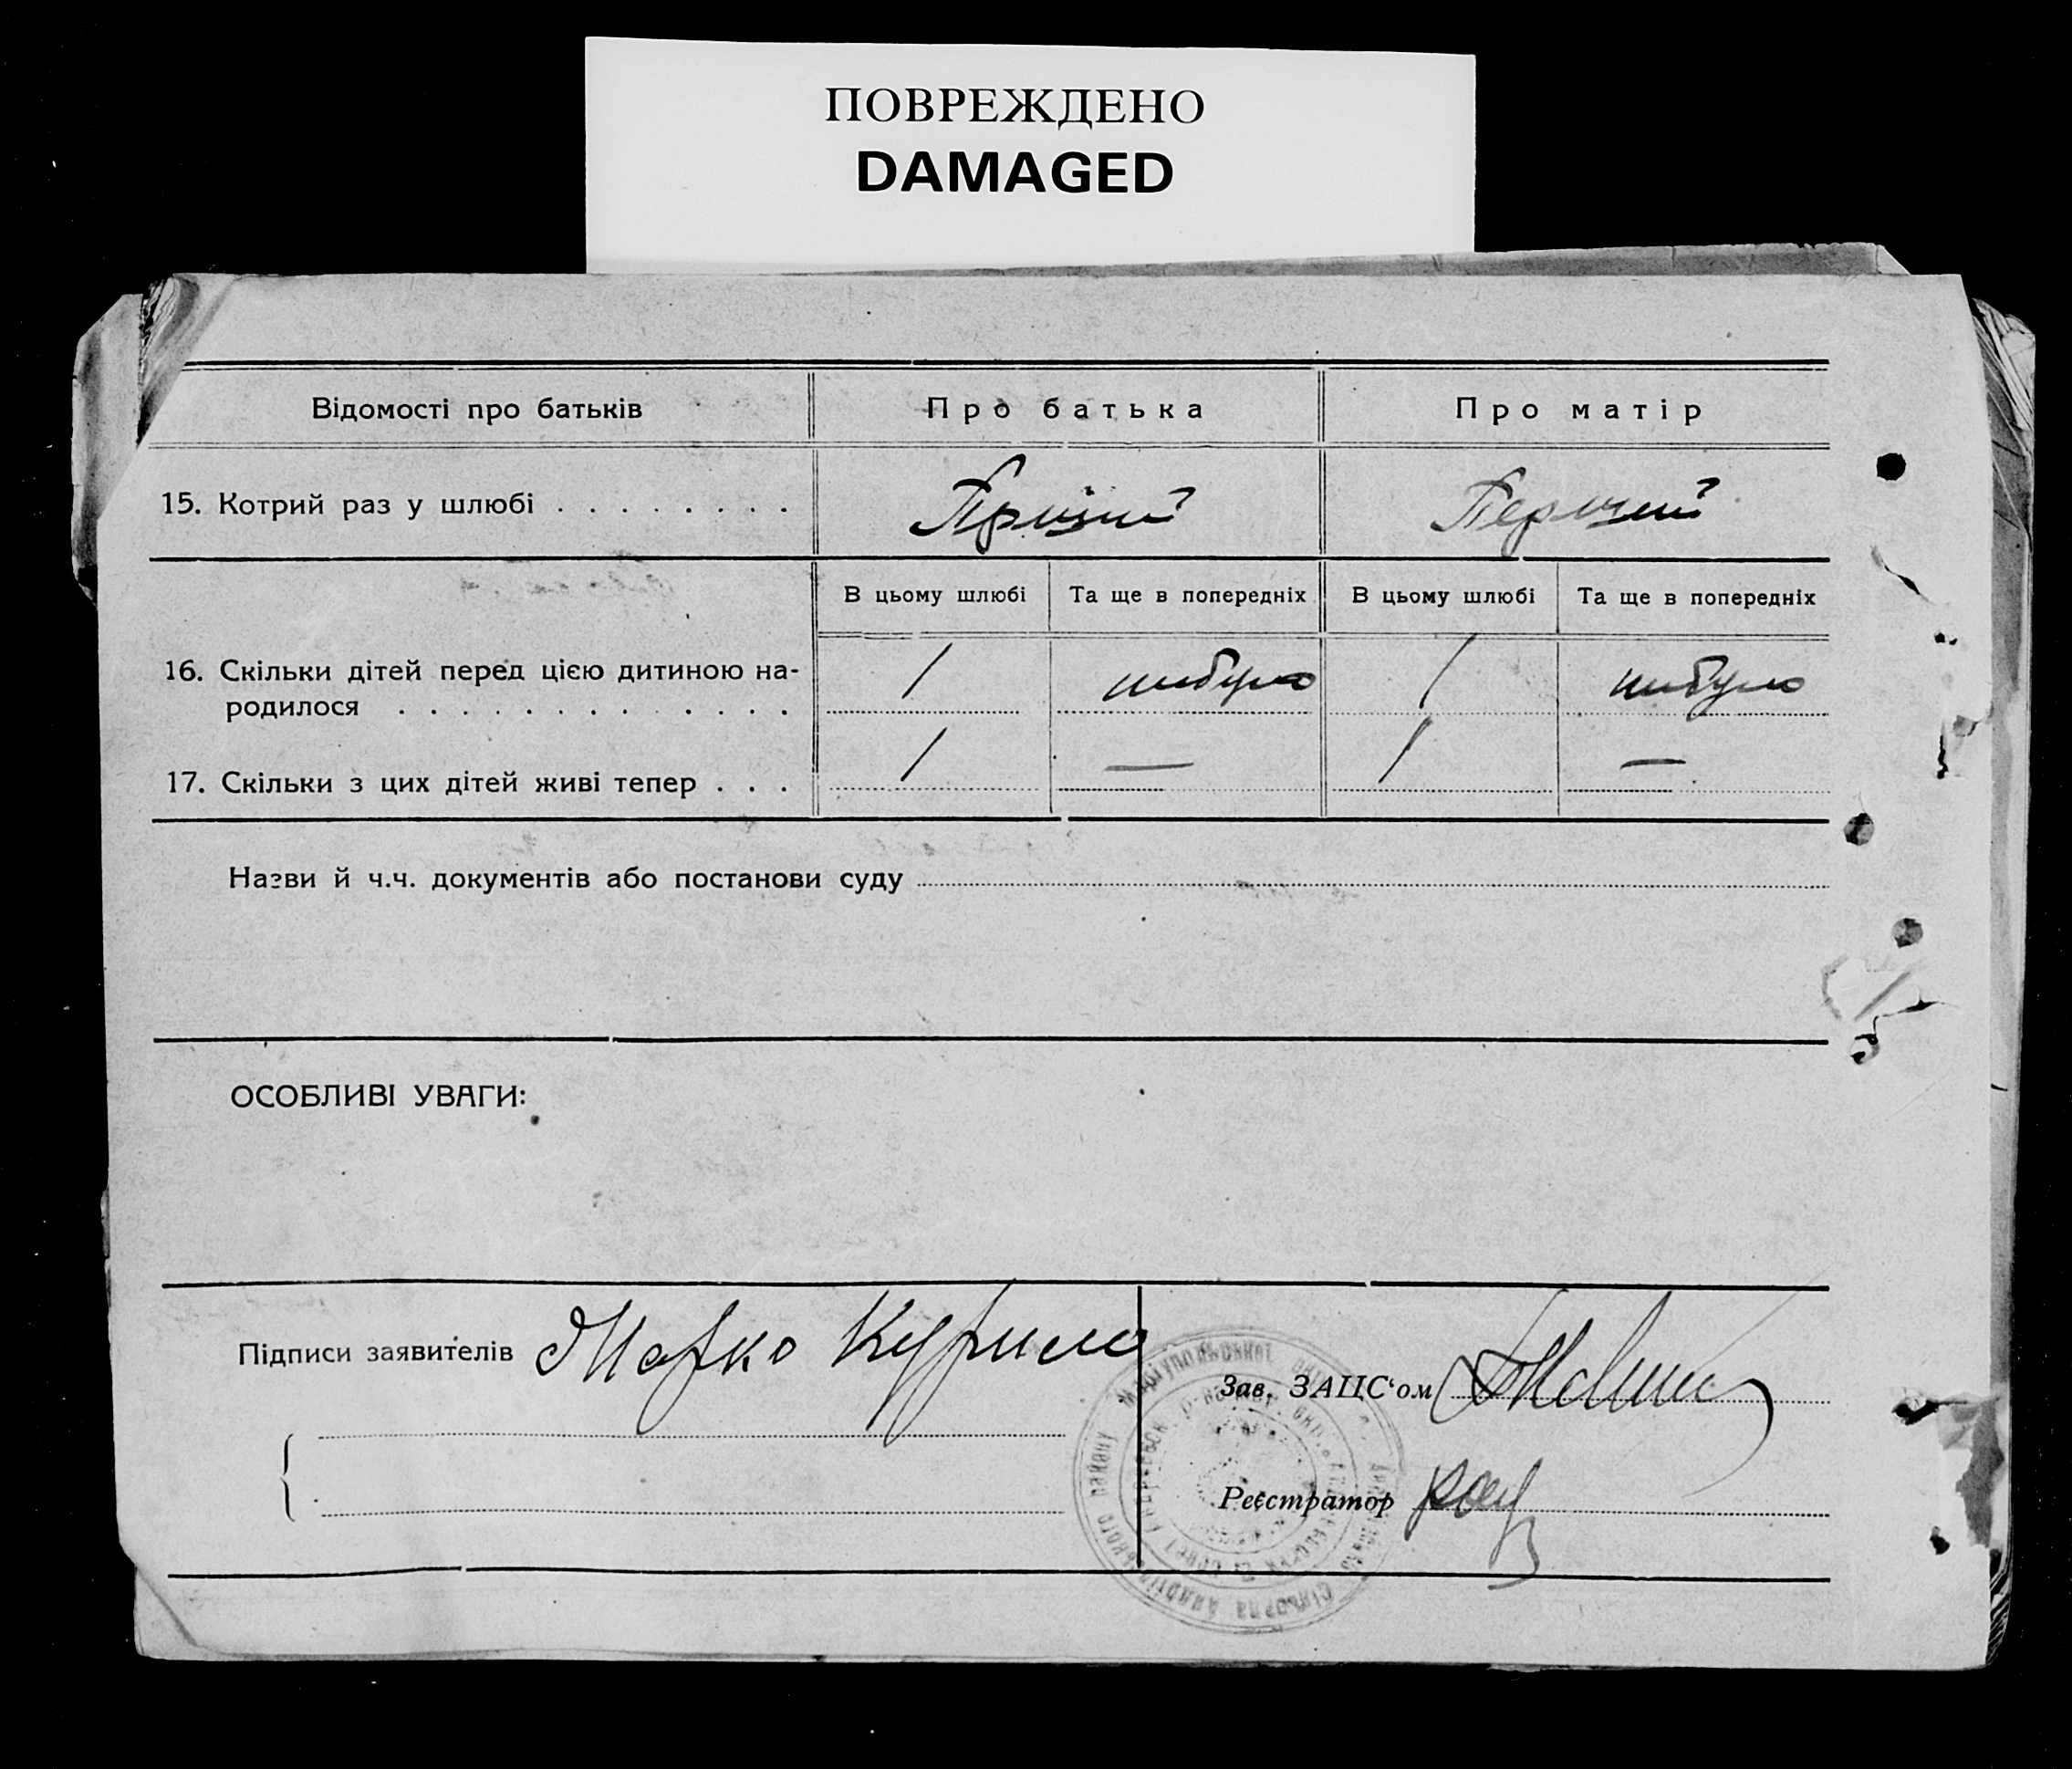 ПОВРЕЖДЕНО
DAMAGED
Відомості про батьків
Про батька
Про матір
15. Котрий раз у шлюбі
Перший
В цьому шлюбі
Та ще в попередніх
В цьому шлюбі
Та ще в попередніх
16. Скільки дітей перед цією дитиною на-
родилося
1
небуло
1
небуло
17. Скільки з цих дітей живі тепер
1
—
1
—
Назви й ч.ч. документів або постанови суду
ОСОБЛИВІ УВАГИ:
Підписи заявителів Марко Курило
Зав. ЗАЦС‘ом
Реєстратор
Маріупольської
району